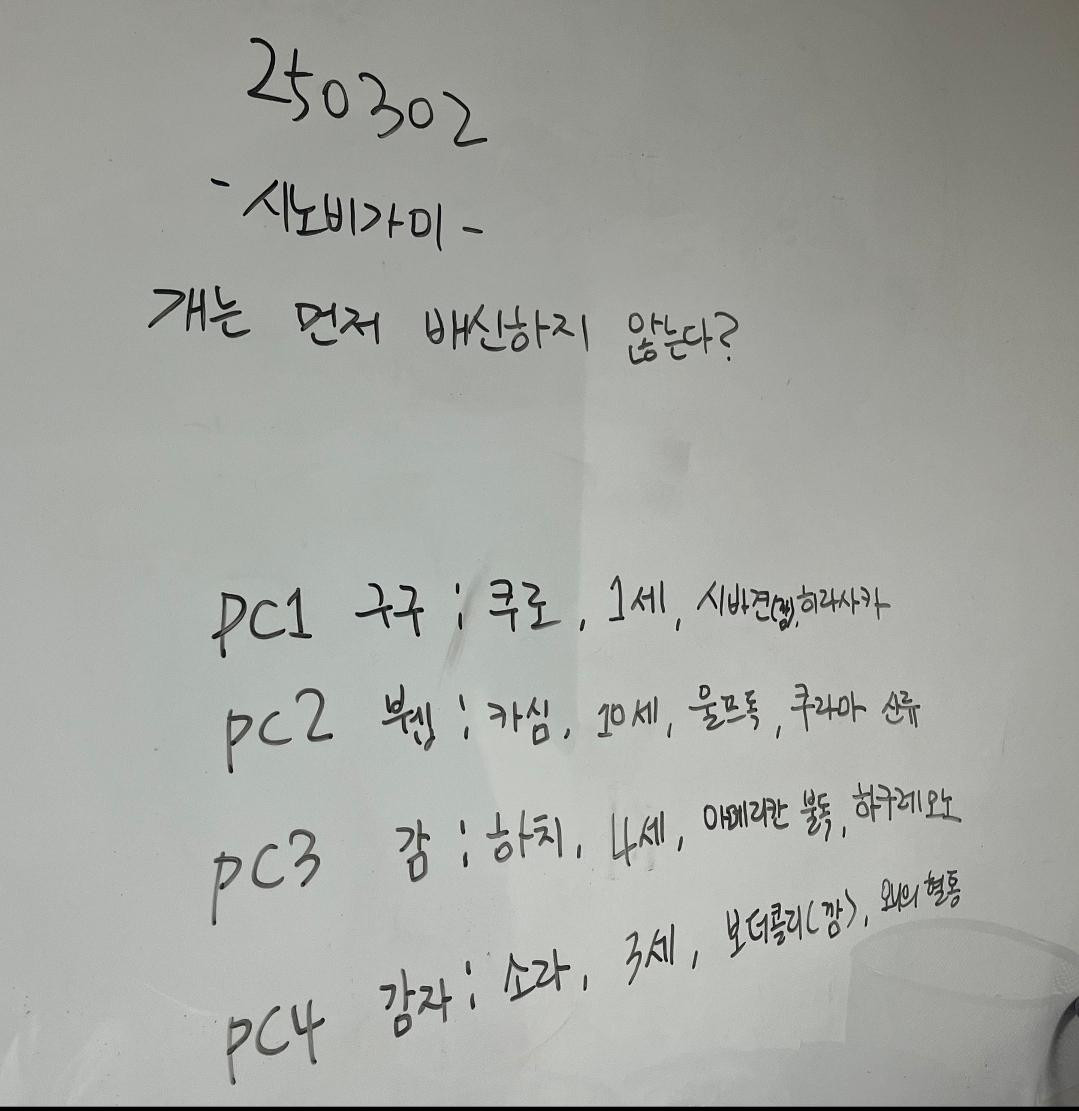 250302
- 시노비가미 -
개는 먼저 배신하지 않는다?
PC1 구구 : 쿠로, 1세, 시바견(깜), 히라사카
PC2 뿌엡 : 카심, 10세, 울프독, 쿠라마 신류
PC3 감 : 하치, 4세, 아메리칸 불독, 하구레모노
PC4 감자 : 소라, 3세, 보더콜리(깜), 오니의 혈통